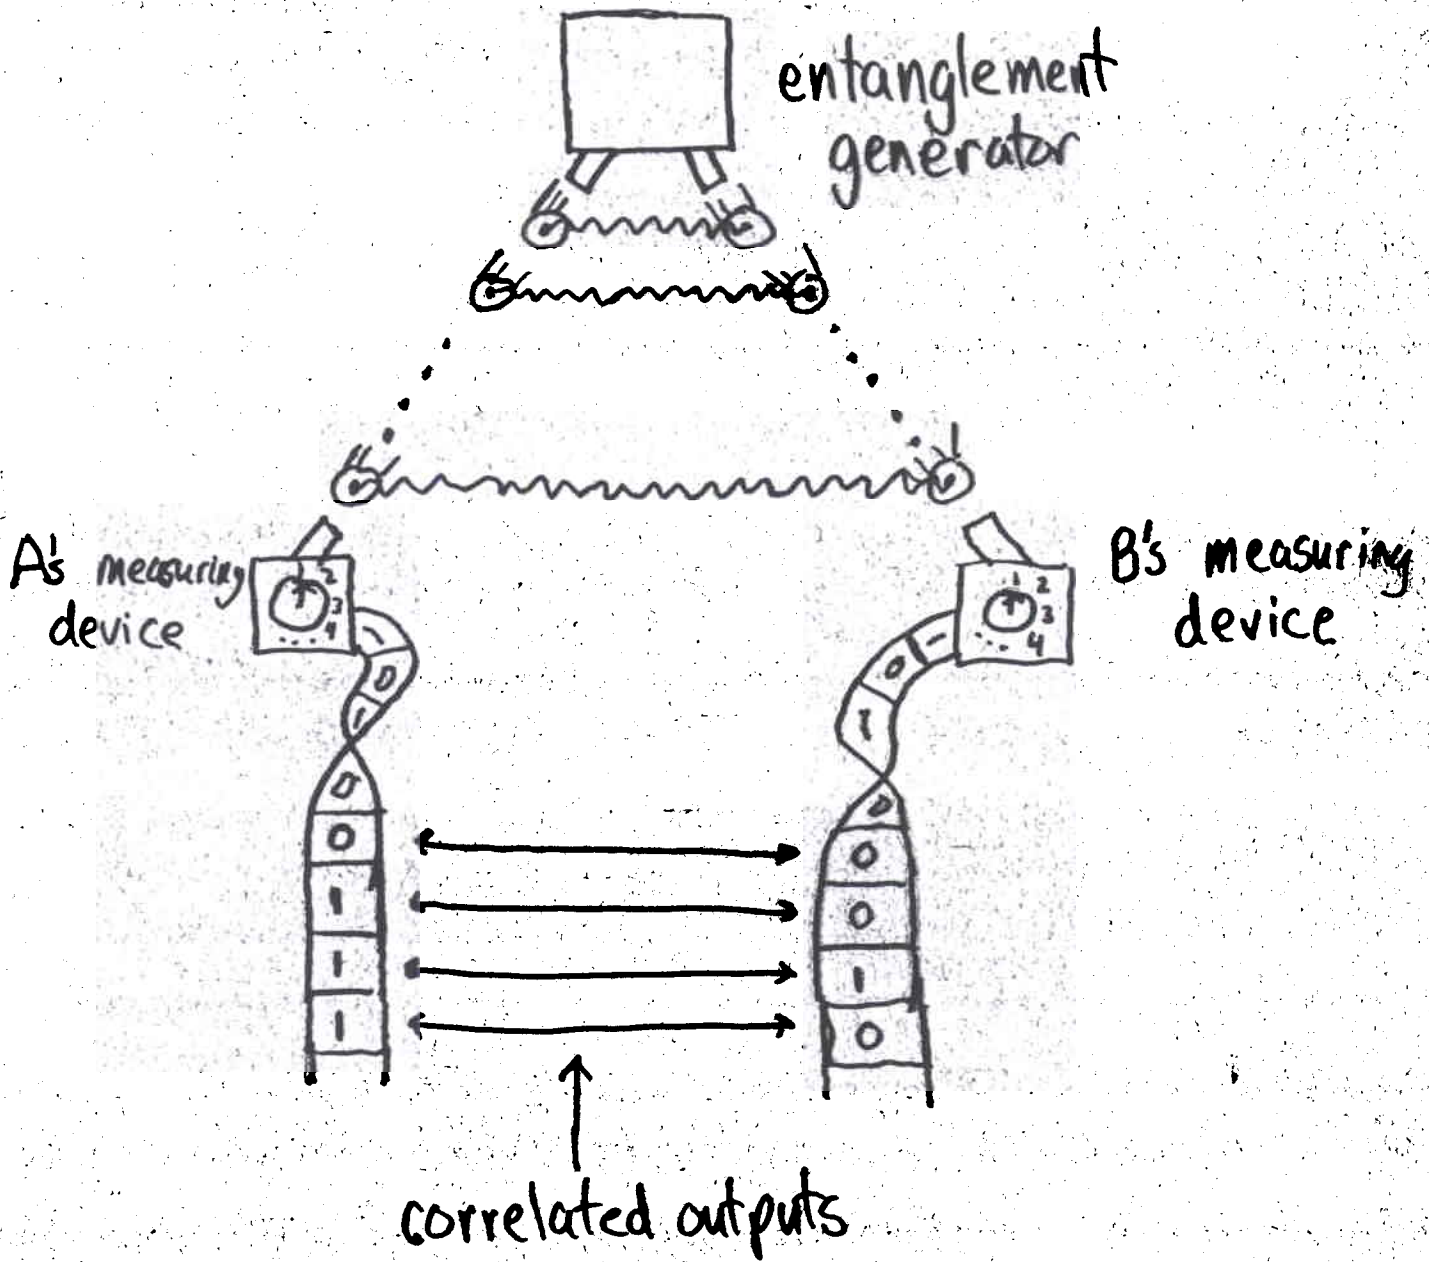 entanglement
generator
A's measuring
device
1 2
3
4
B's measuring
device
1 2
3
4
1
0
1
0
0
1
1
1
1
0
1
0
0
0
1
0
correlated outputs